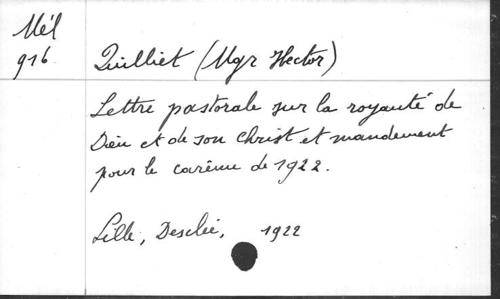 Mél
916
Quilliet (Mgr Hector)
Lettre pastorale sur la royauté de
Dieu et de son Christ et mandement
pour le carême de 1922.
Lille, Desclée, 1922